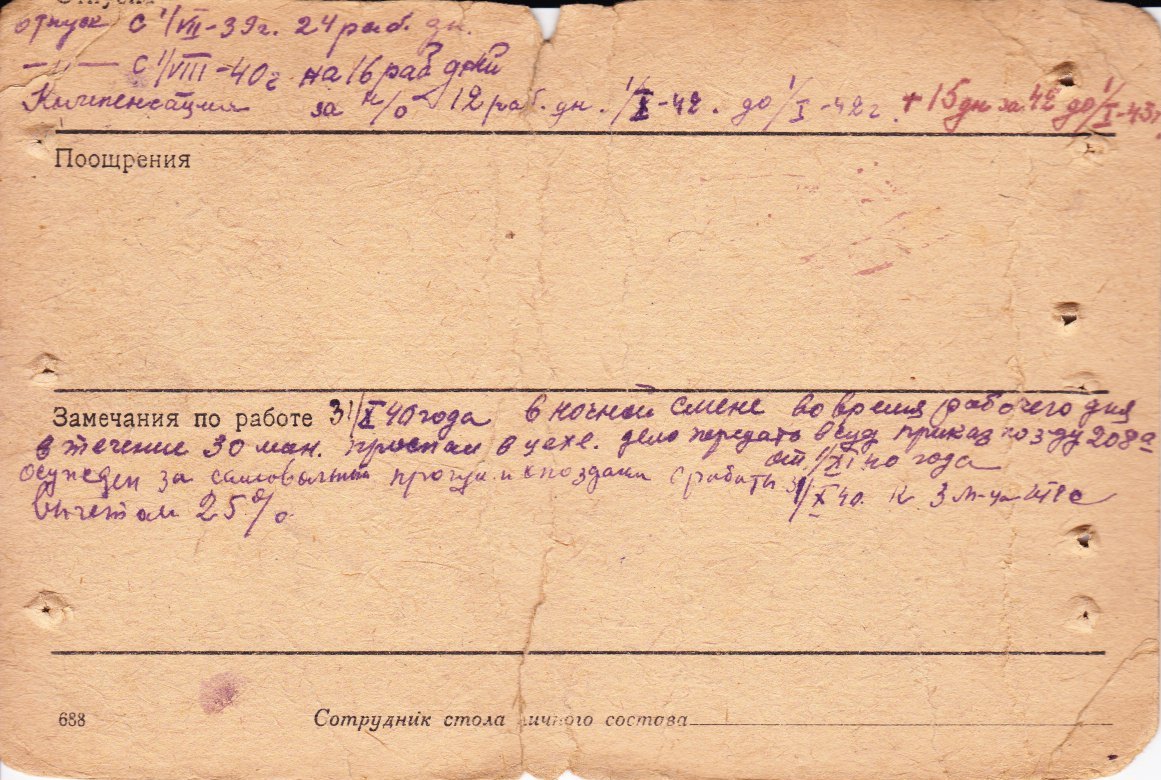 отпуск с 1/VII-39г. 24 раб. дн.
—"— с 1/VIII-40г на 16 раб дней
Компенсация за н/о 12 раб. дн. 1/X-42. до 1/I-42г. + 15 дн за 42 до 1/I-43г
Поощрения
Замечания по работе 31/X 40 года в ночной смене во время рабочего дня
в течение 30 мин. проспал в цехе. дело передать в суд приказ по з-ду 208а
от 1/XI 40 года
Осужден за самовольный прогул и опоздани с работы 31/X 40. к 3 м-ца ИТР с
вычетом 25%
688 Сотрудник стола личного состава